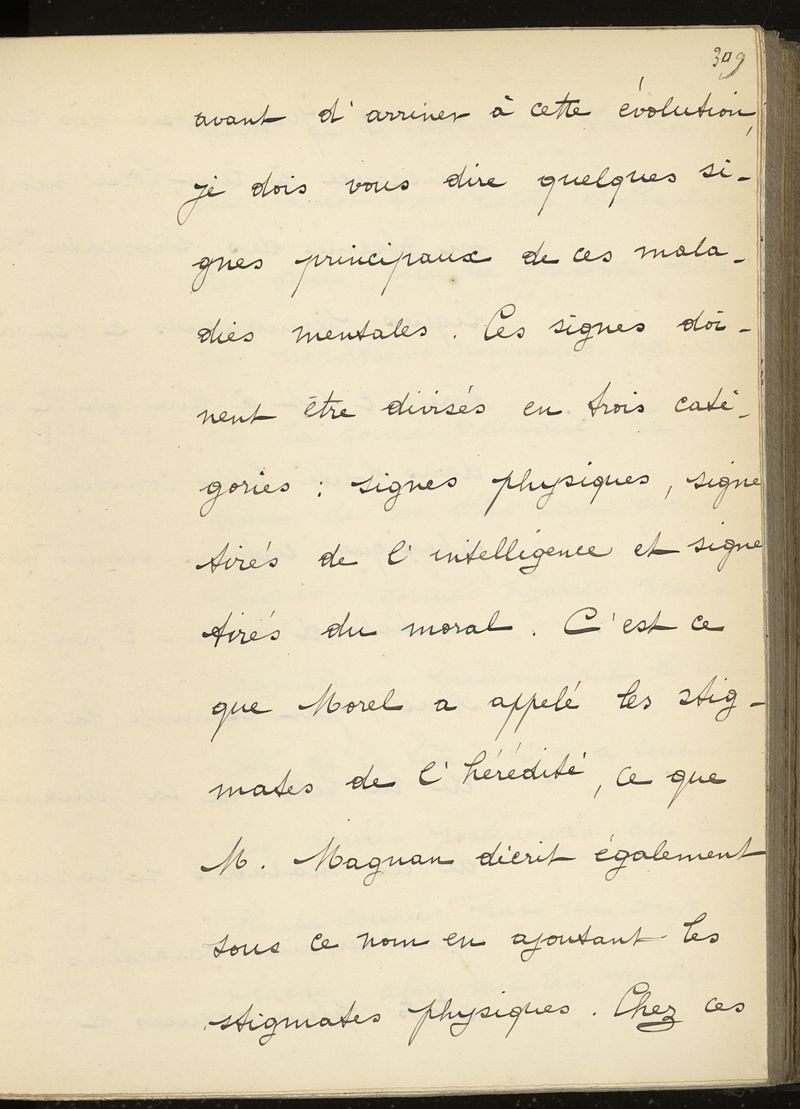 309
avant d'arriver à cette évolution,
je dois vous dire quelques si-
gnes principaux de ces mala-
dies mentales. Ces signes doi-
vent être divisés en trois caté-
gories : signes physiques, signe
tirés de l'intelligence et signe
tirés du moral. C'est ce
que Morel a appelé les stig-
mates de l'hérédité, ce que
M. Magnan décrit également
sous ce nom en ajoutant les
stigmates physiques. Chez ces